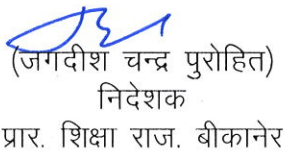 (जगदीश चन्द्र पुरोहित)
निदेशक
प्रार. शिक्षा राज. बीकानेर